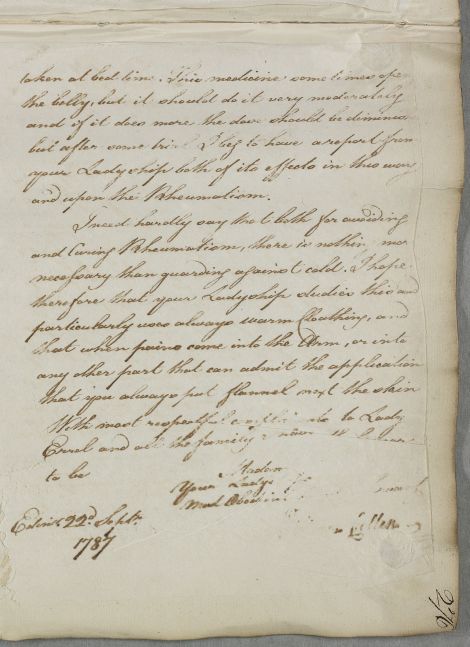 taken at bed time. This medicine sometimes ope
the belly, but it should do it very moderately
and if it does more the dose should be diminis
but after some trial I beg to have a report from
your Ladyship both of its effects in this way
and upon the Rheumatism.
I need hardly say that both for avoiding
and Curing Rheumatism, there is nothing mor
necessary than guarding against cold. I hope
therefore that your Ladyship studies this and
particularly uses always warm Cloathing, and
that when pains come into the Arm, or into
any other part that can admit the application
that you always put flannel next the skin
With most respectful to Lady
Errol and all the family I have
to be
Madam
Your Ladys
most Obedien
Edinr. 22d. Septr.
1787